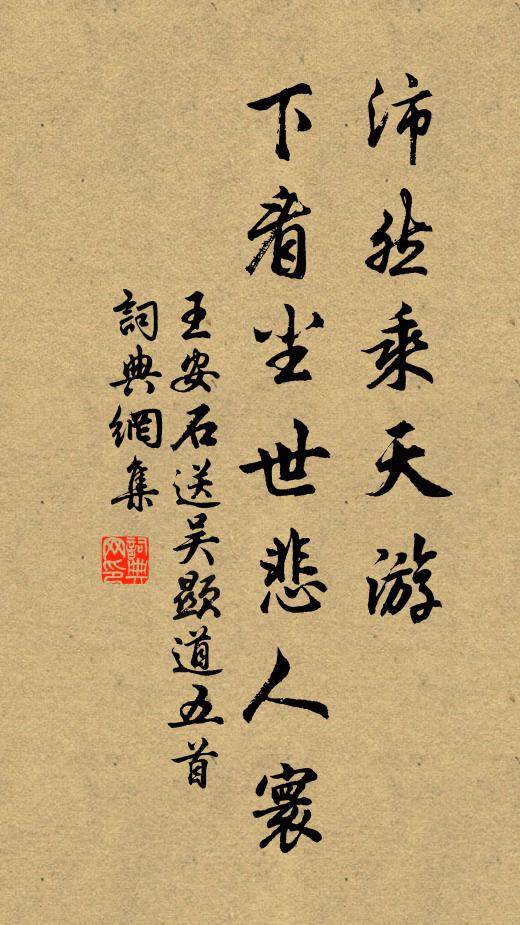 沛然乘天游
下看尘世悲人寰
王安石送吴顯道五首
詞典網集
詞典
网印